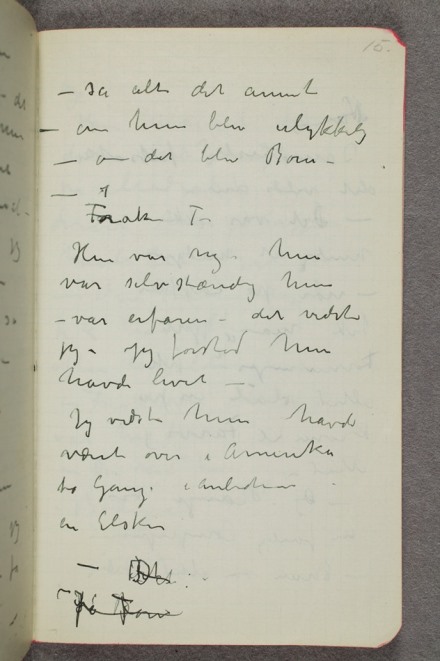 15.
– sa alt det annet
– om hun blev ulykkelig
– om det blev Børn –
– og
Hun var rig – hun
var selvstændig hun
– var erfaren – det vidste
jeg – jeg forstod hun
havde levet –
Jeg vidste hun havde
været over i Amerika
to Gange i anledn
en Elsker
– Det